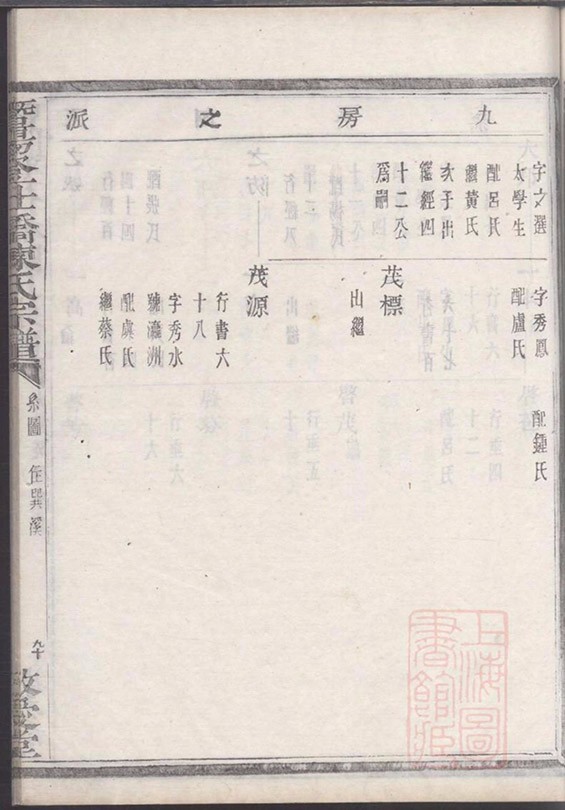 九房之派
字文選
太學生
配呂氏
繼黃氏
次子出
繼經四
十二公
爲嗣
字秀鳳
配盧氏
配鍾氏
茂標
出繼
茂源
行書六
十八
字秀水
號瀛洲
配虞氏
繼蔡氏
陳氏宗譜
系圖
住巽溪
九十
上海圖
書館藏